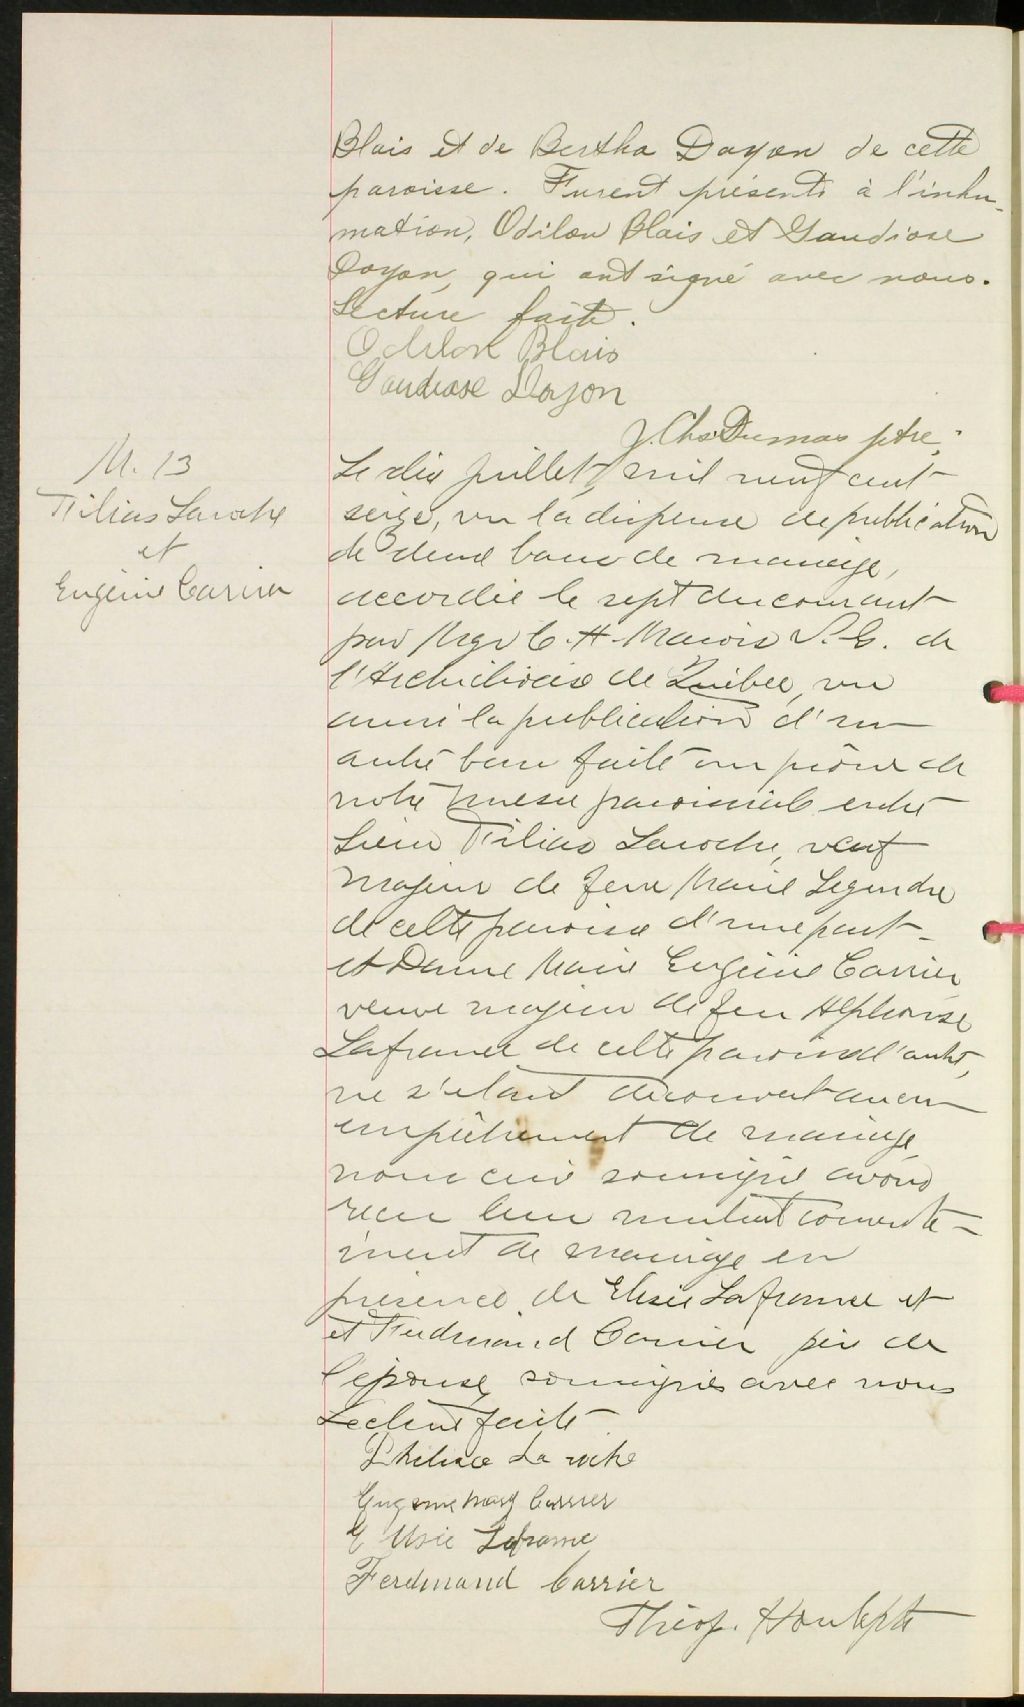 Blais et de Bertha Doyon de cette
paroisse. Furent présents à l'inhu-
mation, Odilon Blais et Gaudiose
Doyon, qui ont signé avec nous.
Lecture faite.
Odilon Blais
Gaudiose Doyon
J. Chs Dumas ptre.
M. 13
Filias Laroche
et
Eugénie Carrier
Le dix juillet, mil neuf cent
seize, vu la dispense de publication
de deux bans de mariage,
accordée le sept du courant
par Mgr C. H. Marois V. G. de
l'Archidiocèse de Québec, vu
aussi la publication d'un
autre ban faite au prône de
notre messe paroissiale entre
Sieur Filias Laroche, veuf
majeur de feue Marie Legendre
de cette paroisse d'une part
et Dame Marie Eugénie Carrier,
veuve majeur de feu Alphonse
Lafrance de cette paroisse d'autre,
ne s'étant découvert aucun
empêchement de mariage
nous curé soussigné avons
reçu leur mutuel consente-
ment de mariage en
présence de Elisée Lafrance et
et Ferdinand Carrier père de
l'épouse, soussignés avec nous
Lecture faite
Philias La roche
Eugenie Mary Carrier
Ferdinand Carrier
Théop. Houle ptre